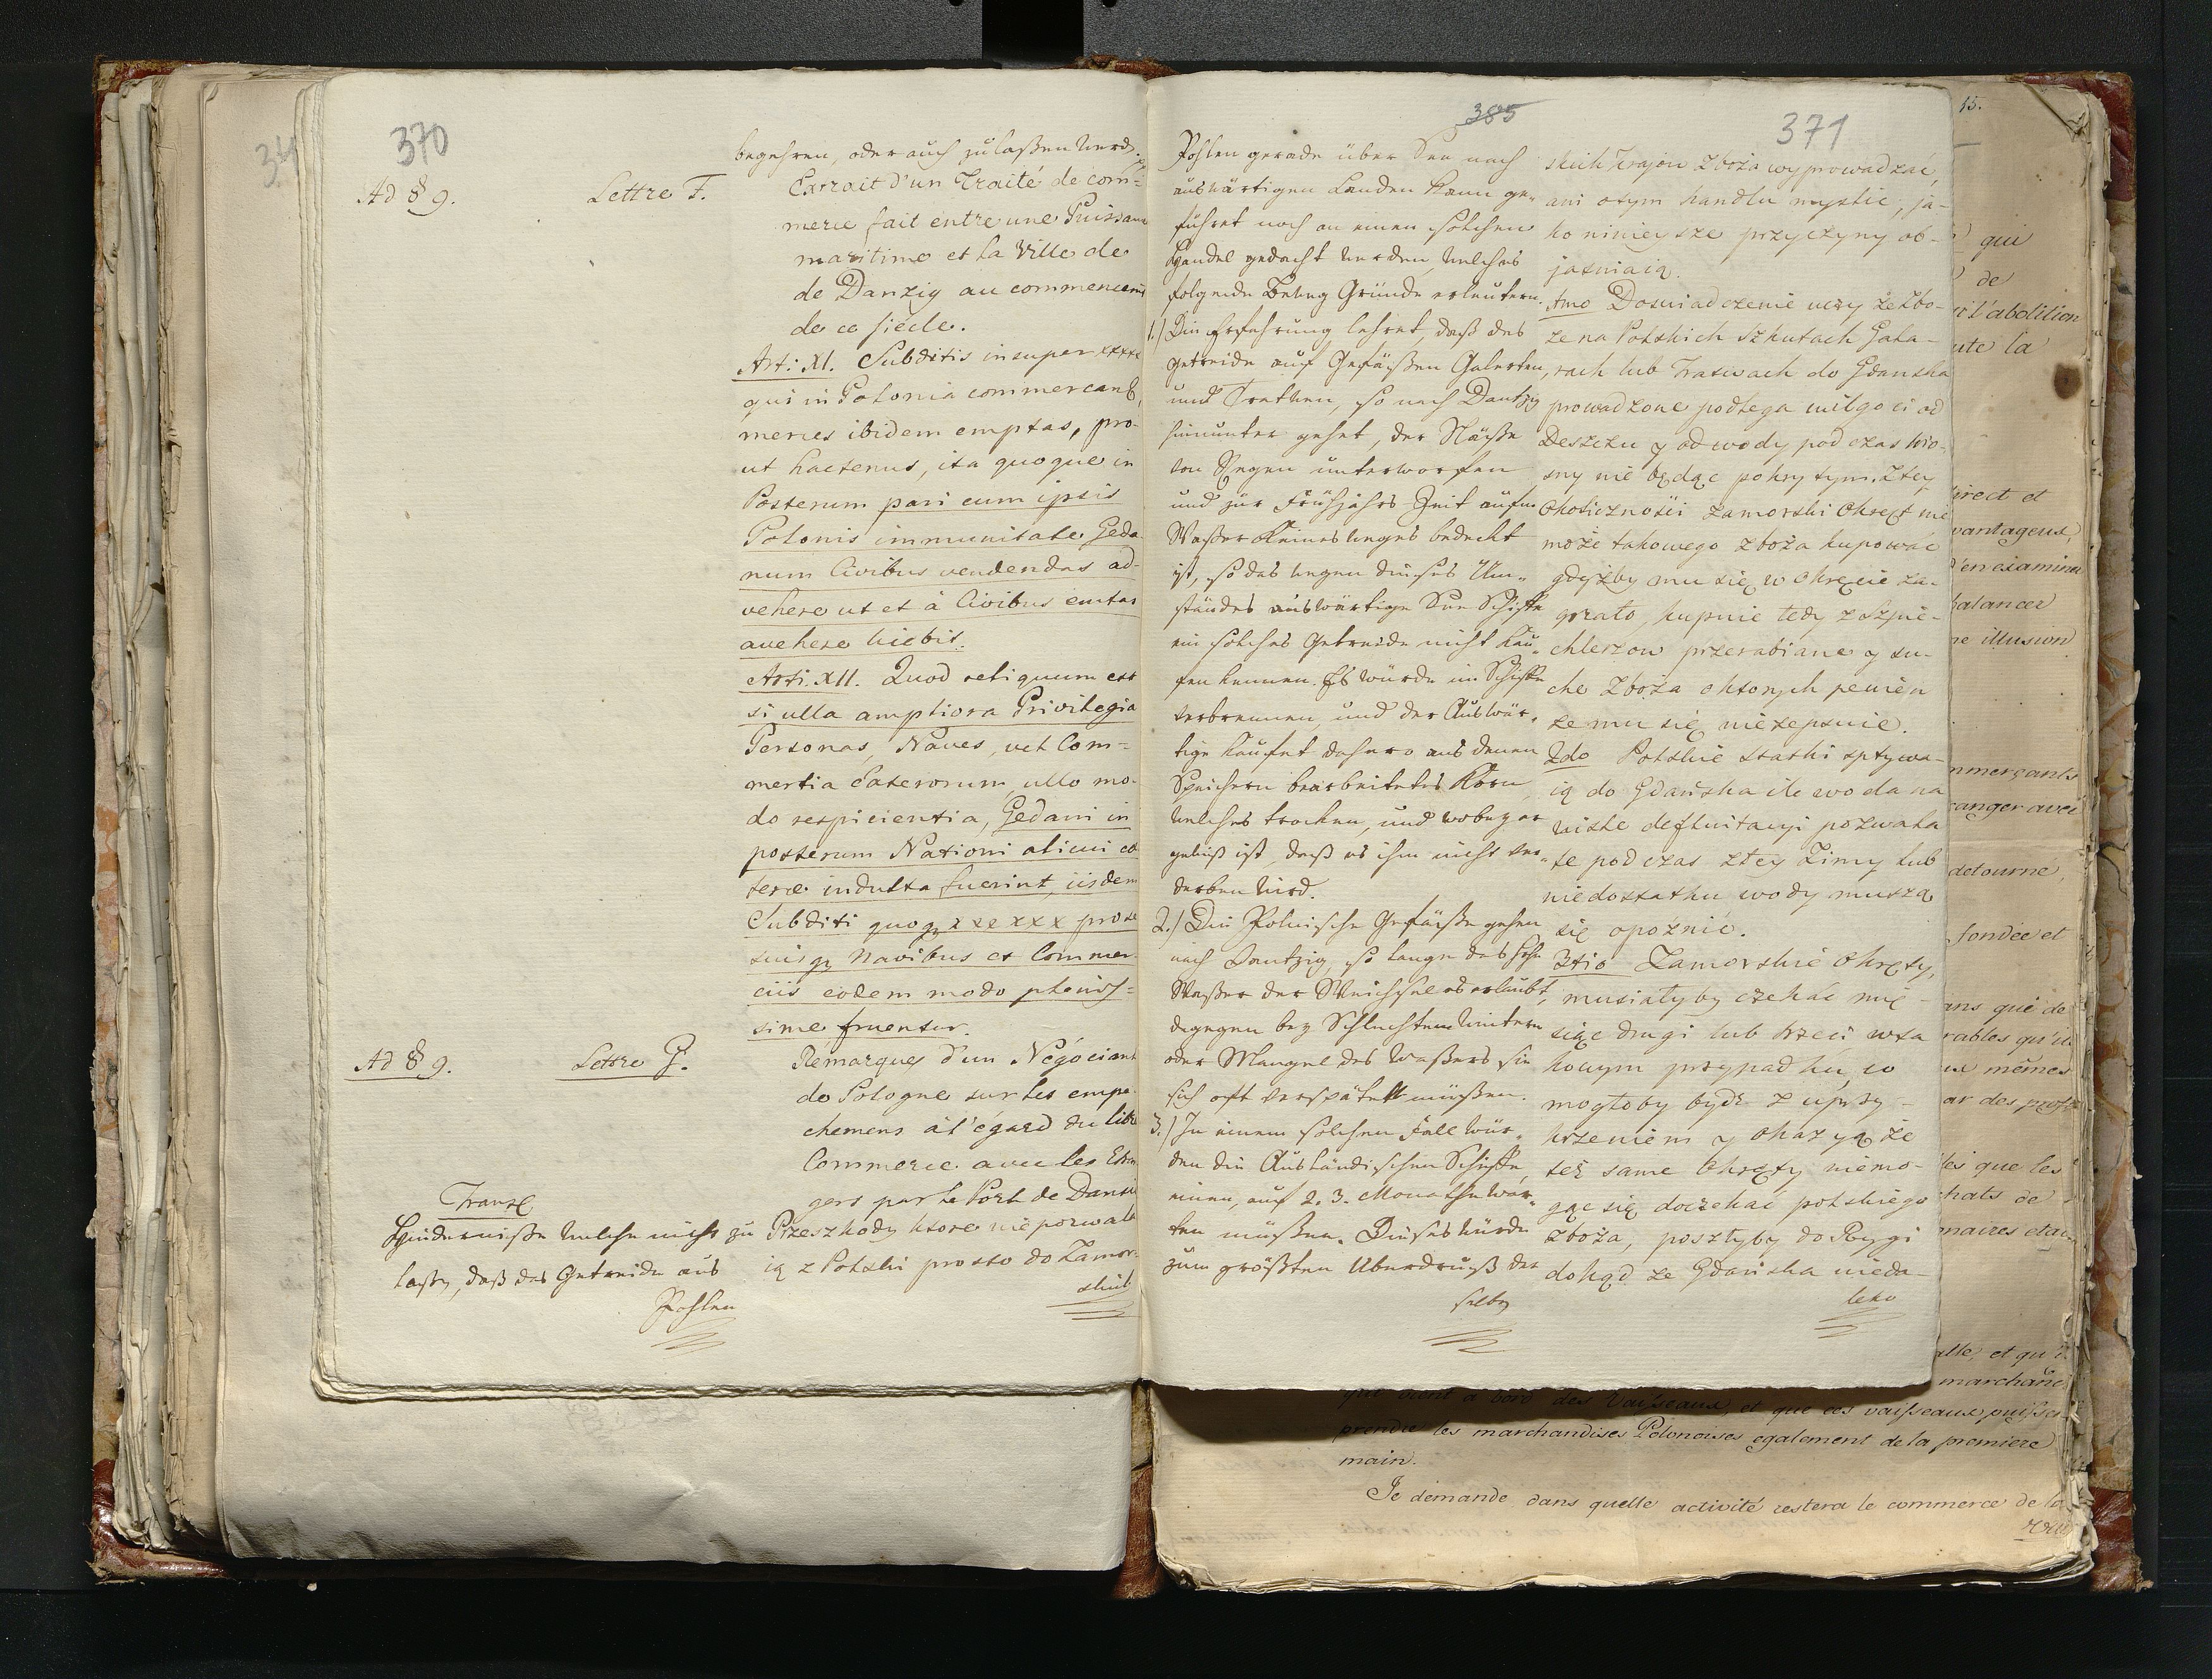 370
begehren, oder auch zulaßen werde.
Ad § 9. Lettre F.
Extrait d'un Traité de com=
merce fait entre une Puissance
maritime et la Ville de
de Danzig au commencemt
de ce siécle.
Art: XI. Subditis insuper xxxx
qui in Polonia commercant,
merces ibidem emptas, pro-
ut hactenus, ita quoque in
Posterum pari cum ipsis
Polonis immunitate Geda-
num Civibus vendendas ad-
vehere ut et à Civibus emtas
avehere liebit.
Art: XII. Quod reliquum est
si ulla ampliora Privilegia
Personas, Naves, vel Com=
mertia Exterorum, ullo mo-
do respicientia, Gedani in
posterum Nationi alicui ex
terœ indulta fuerint, iisdem
Subditi quoq xxexxx pro se
suisq Navibus et Commer-
ciis eodem modo plenis=
sime fruentur.
Ad § 9. Lettre G.
Remarques d'un Négociant
de Pologne sur les empe-
chemens à l'égard du libre
Commerce avec les Etran
gers par le Port de Danzi
Transl
Hinderniße welche nicht zu
laßen, daß das Getreide aus
Pohlen
Przeszkody ktore nie pozwala
ią z Polski prosto do Zamor-
skich
385
371
Pohlen gerade über See nach
auswärtigen Landen kann ge-
führet noch an einen solchen
Handel gedacht werden, welches
folgende Beweg Gründe erleutern.
1.) Die Erfahrung lehret, daß das
Getreide auf Gefäßen Galeeren,
und Traften, so nach Dantzig
hinunter gehet, der Näße
von Regen unterworfen
und zur Frühjahrs Zeit aufm
Waßer keines weges bedeckt
ist, so das wegen dieses Um-
standes auswärtige See Schiffe
ein solches Getreide nicht kau-
fen können. Es würde im Schiffe
verbrennen, und der Auswär-
tige kaufet dahero aus denen
Speichern bearbeitetes Korn,
welches trocken, und wobey er
gewiß ist, daß es ihm nicht ver-
derben wird.
2.) Die Polnische Gefäße gehen
nach Dantzig, so lange das hohe
Waßer der Weichsel es erlaubt,
dagegen bey Schlechten Wintern
oder Mangel des Waßers sie
sich oft verspäten müßen.
3.) In einem solchen Fall wür-
den die Ausländischen Schiffe
einen, auch 2. 3. Monathe war-
ten müßen. Dieses würde
zum größten Uberdruß der
selben
skich Krajow zboża wyprowadzać,
ani otym handlu myslic, ja-
ko niniey sze przyczyny ob-
jasniaią.
1mo Doswiadczenie uczy że zbo-
że na Polskich Szkutach Gala-
rach lub Traswach do Gdanska
prowadzone podlega wilgoci od
Deszczu y od wody pod czas wio-
sny nie będąc pokrytym. Z tey
Okoliczności Zamorski Okręt nie
może takowego zboża kupować
gdyżby mu się w okręcie za-
grzało, kupuie tedy z Szpie-
chlerzow przerabiane y su-
che zboża o ktorych pewien
że mu się niezepsuie.
2do Polskie statki spływa-
ią do Gdańska ile woda na
wisle defluitacyi pozwala
te podczas złey Zimy lub
niedostatku wody muszą
się opoźnić.
3tio Zamorskie Okręty,
musiałyby czekać mie-
siąc drugi lub trzeci w ta
kowym przypadku, co
mogłoby bydz z uprzy-
krzeniem y okazyą że
też same Okręty niemo-
gąc się doczekać polskiego
zboża, poszłyby do Rygi
dokąd ze Gdańska nieda-
leko
15.
qui
de
l'abolition
ute la
irect et
vantageux,
d'en examiner
balancer
illusion
anger avec
detourné,
fondée et
ans que de
rables qu'il
ux mêmes
ar des prof
les que les
hats de
naires et
alle, et qu'i
marchand
des Vaisseaux, et que ces vaisseaux puisse
prendre les marchandises Polonoises egalement de la premiere
main.
Je demande dans quelle activité restera le commerce de la